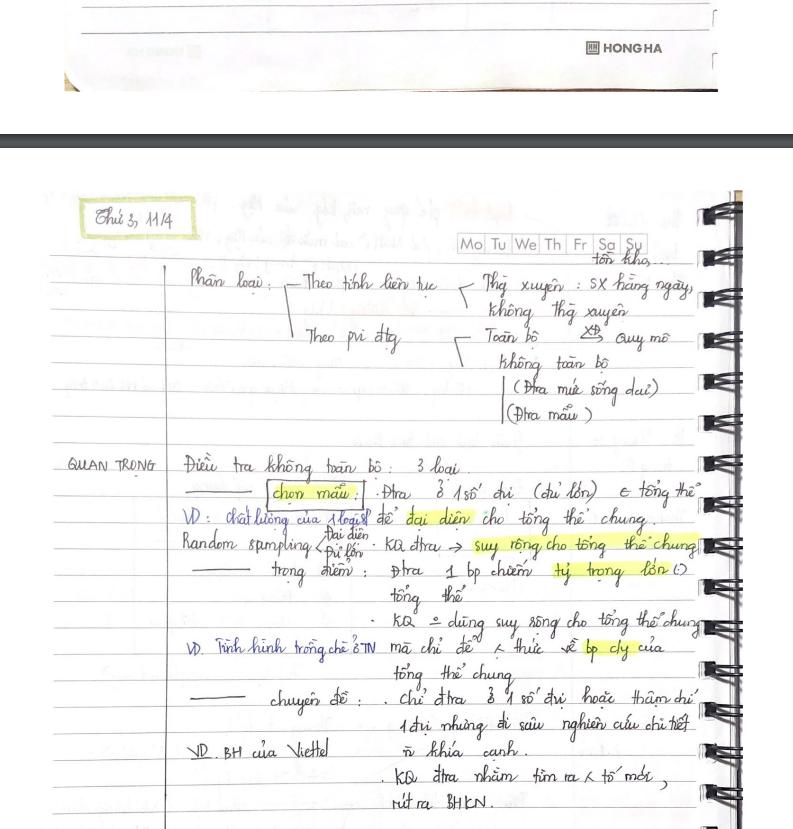 HONG HA
Thứ 3, 11/4
Mo Tu We Th Fr Sa Su
tồn kho,
Phân loại : Theo tính liên tục Thg xuyên : SX hằng ngày,
không thg xuyên
Theo pvi đtg Toàn bộ XĐ Quy mô
không toàn bộ
(Đtra mức sống dcư)
(Đtra mẫu)
QUAN TRỌNG Điều tra không toàn bộ : 3 loại.
chọn mẫu : . Đtra ở 1 số đvi (đủ lớn) ∈ tổng thể
VD : chất lượng của 1 logist để đại diện cho tổng thể chung.
Đại diện
Random sampling < . KQ đtra → suy rộng cho tổng thể chung
Đủ lớn
trọng điểm : Đtra 1 bp chiếm tỷ trọng lớn (-)
tổng thể
. KQ dùng suy rộng cho tổng thể chung
VD. Tình hình trồng chè ở TN mà chỉ để thức về bp cly của
tổng thể chung
chuyên đề : . Chỉ đtra ở 1 số đvi hoặc thậm chí
1 đvi nhưng đi sâu nghiên cứu chi tiết
VD. BH của Viettel khía cạnh.
. KQ đtra nhằm tìm ra tố mới,
rút ra BHKN.